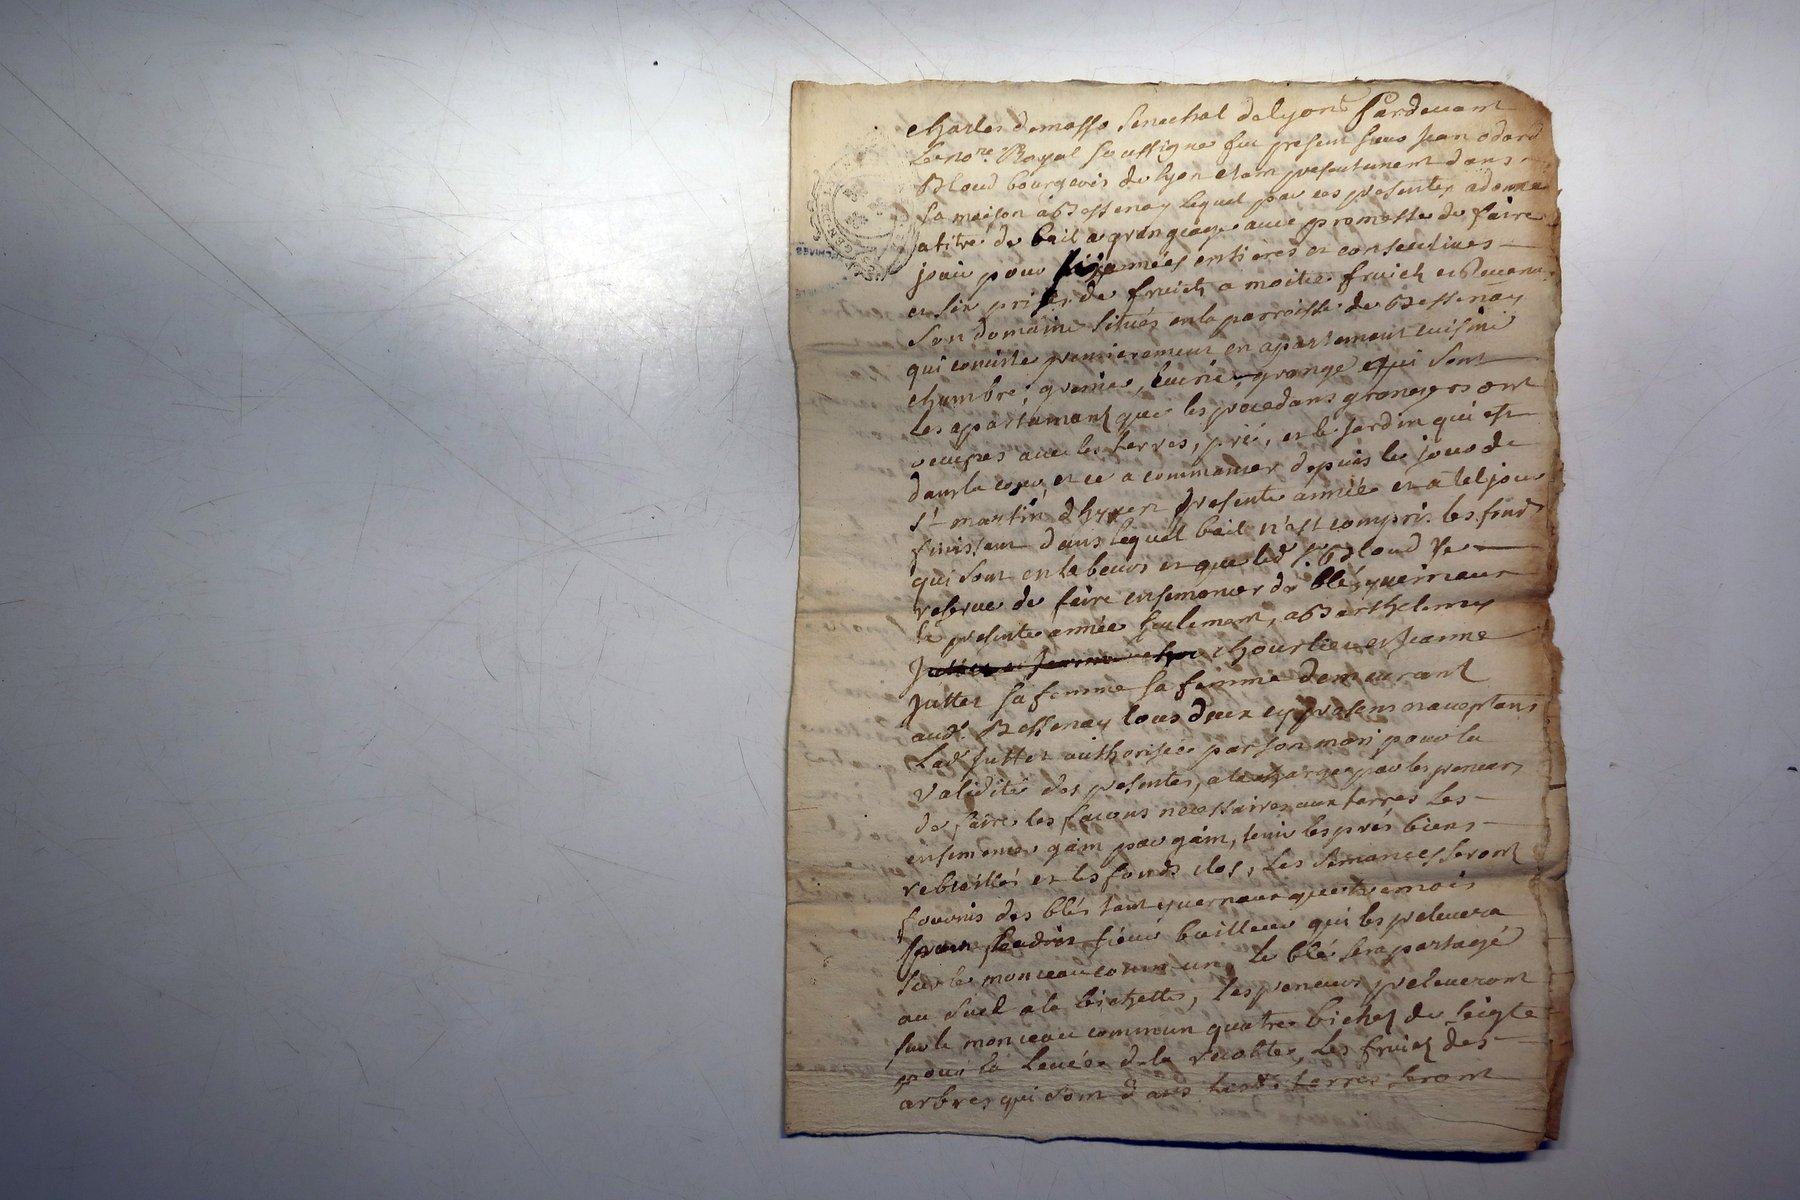 charles demasso senechal de lyon Pardevant
Le no.re Royal soussigné fut present sieur Jean odard
Bloud bourgeois de lyon etant presentement dans
sa maison a Bessenay lequel par ces presentes a donné
a titre de bail a grangeage avec promesse de faire
jouir pour six années entieres et consecutives
et six prises de fruicts a moitié fruicts et Revenu
son domaine situés en la parroisse de Bessenay
qui consiste premierement en apartement cuisine
chambre, grenier, ecurie, grange qui sont
les apartements que les precedans grangers ont
occupés avec les terres, pré, et le jardin qui est
dans la cour, et ce a commancer depuis le jour de
st martin d'hyver presente année et a tel jour
finissant dans lequel bail n'est compris les fonds
qui sont en labeurs et que led. sr Bloud se
reserve de faire ensemencer de blés yvernaux
la presente année seulement, a Barthelemy
chourlieu et Jeanne
Juttet sa femme sa femme demeurant
aud. Bessenay tous deux cy presens n acceptans
Lad. Juttet authorisée par son mari pour la
validité des presentes, a la charge par les preneurs
de faire les façons necessaires aux terres les
ensemencer gain par gain, tenir les prés biens
et les fonds clos, Les semances seront
fournis des blés tant yvernaux que tremois
par sieur bailleur qui les prelevera
sur le monceau commun, le blé sera partagé
au suel a la bichette, les preneurs preleveront
sur le monceau commun quatre bichets de seigle
pour la levée de la recolte, Les fruicts des
arbres qui sont dans lesd. terres seront